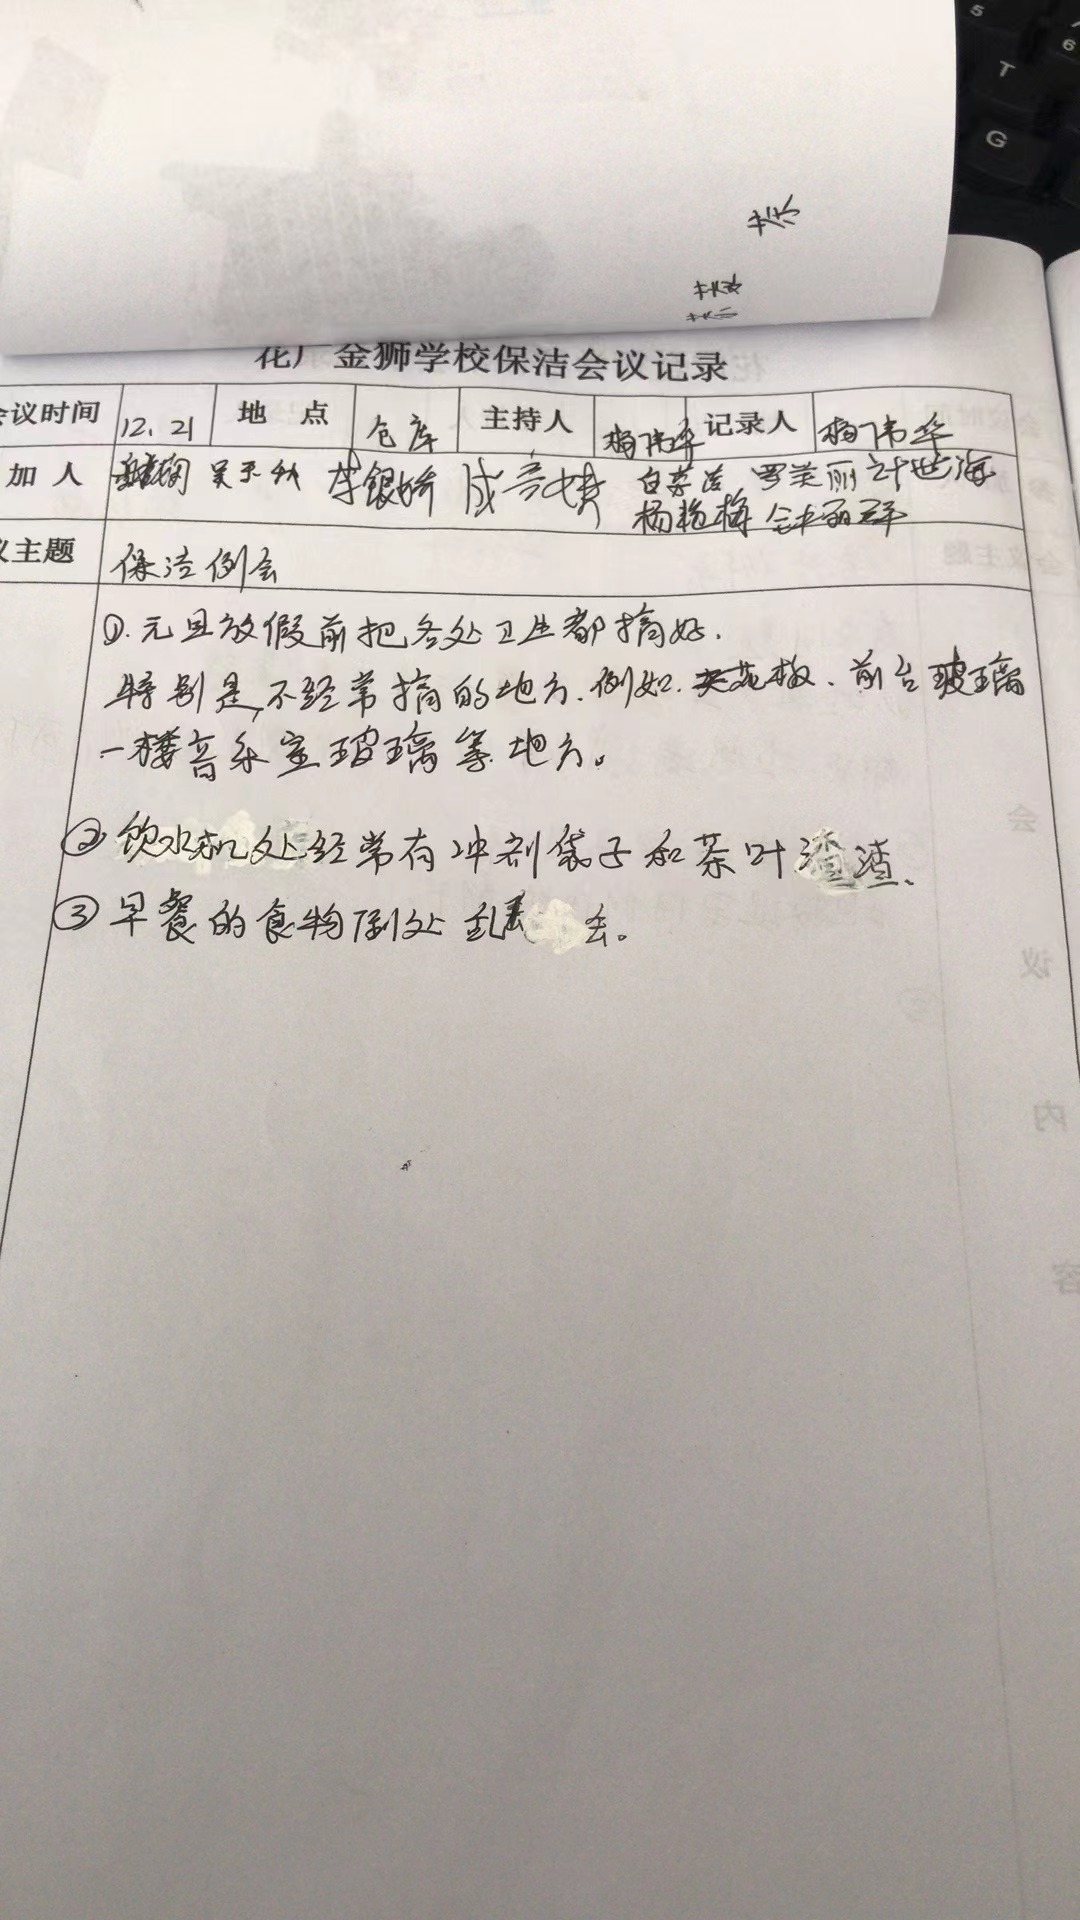 金狮学校保洁会议记录
议时间 12.21 地点 仓库 主持人 梅伟华 记录人 梅伟华
加人 李银娇 罗美丽 计世海
杨艳梅 钟丽群
主题 保洁例会
①.元旦放假前把各处卫生都搞好.
特别是,不经常搞的地方.例如.天花板、前台玻璃
一楼音乐室玻璃等地方。
②饮水机处经常有冲剂袋子和茶叶渣渣、
③早餐的食物到处乱丢。
会
议
内
容
5
6
T
G